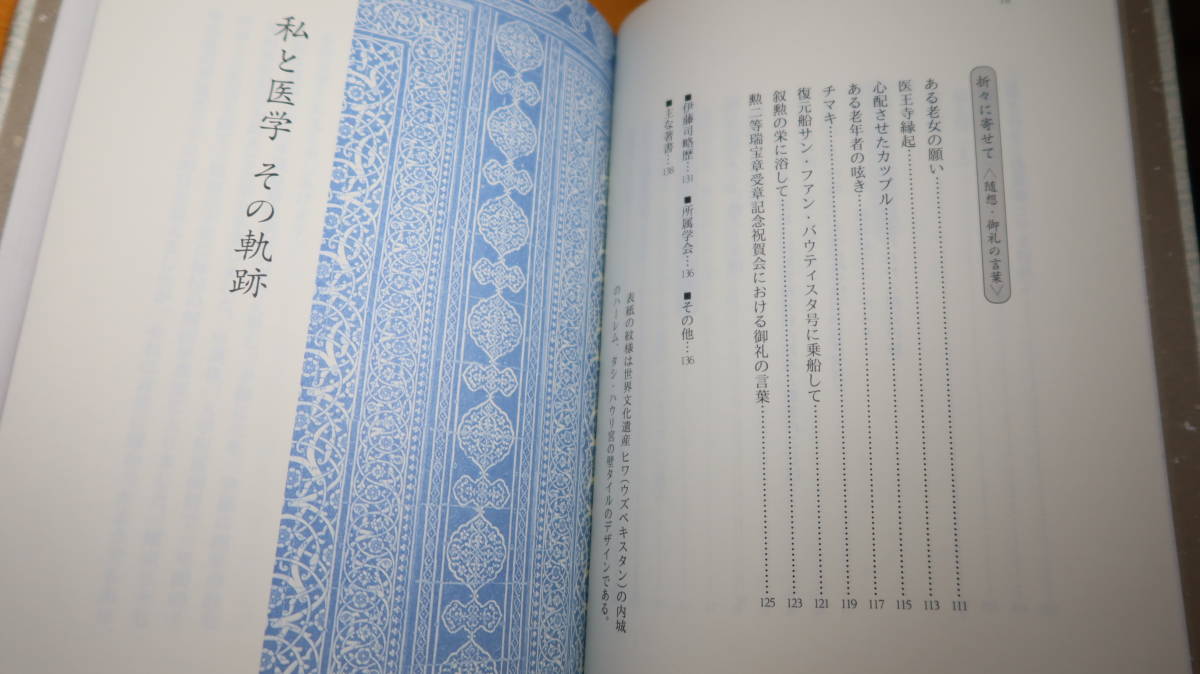 折々に寄せて〈随想・御礼の言葉〉
ある老女の願い……111
医王寺縁起……113
心配させたカップル……115
ある老年者の呟き……117
チマキ……119
復元船サン・ファン・バウティスタ号に乗船して……121
叙勲の栄に浴して……123
勲二等瑞宝章受章記念祝賀会における御礼の言葉……125
■伊藤司略歴…131 ■所属学会…136 ■その他…136
■主な著書…138
表紙の紋様は世界文化遺産 ヒワ(ウズベキスタン)の内城
のハーレム、タシ・ハウリ宮の壁タイルのデザインである。
私と医学 その軌跡